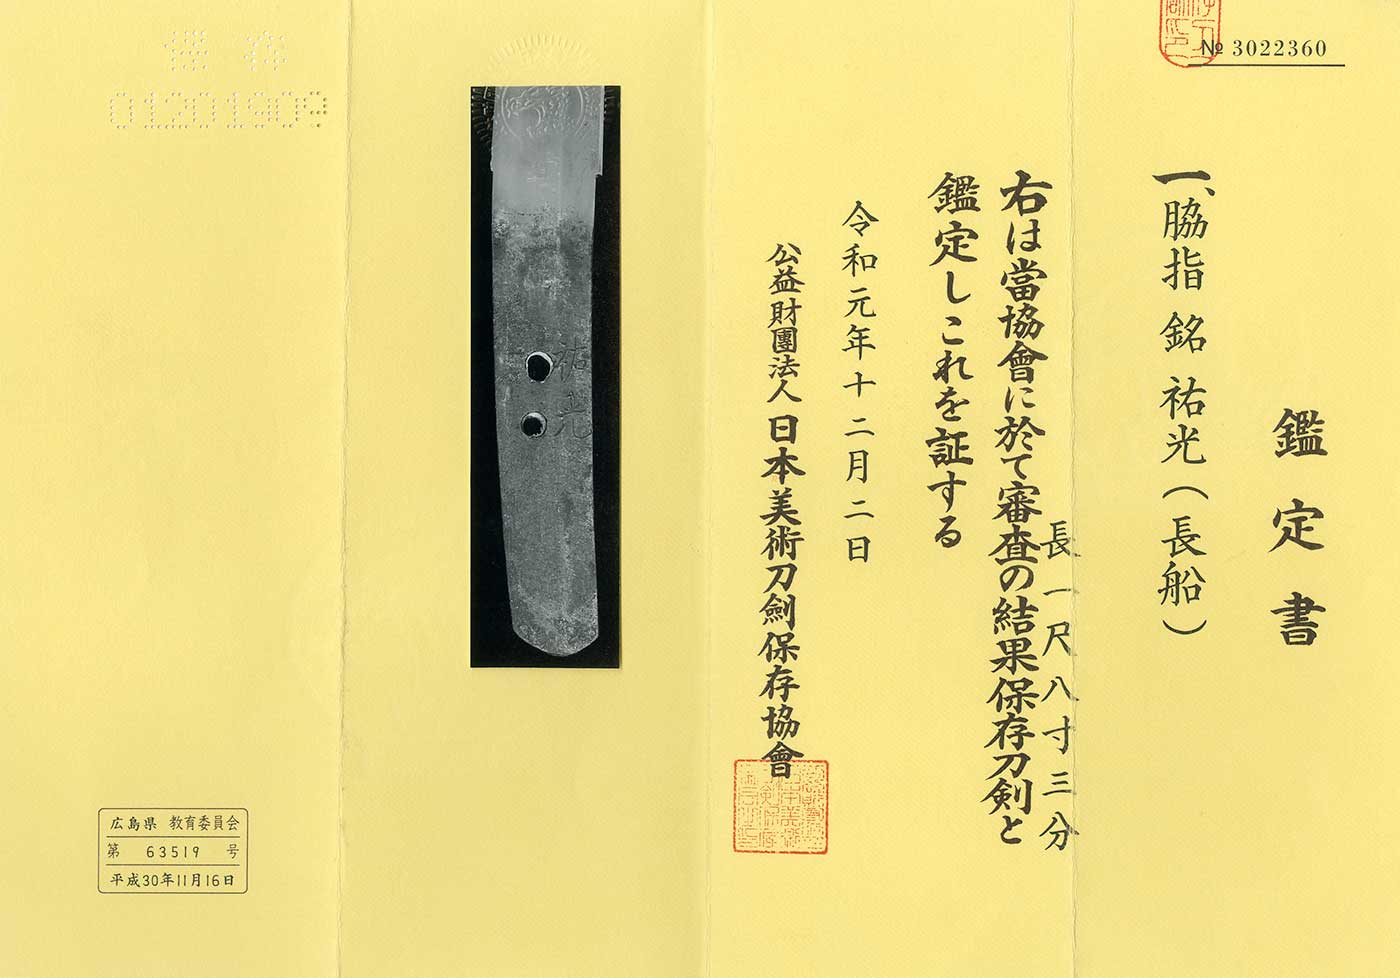 № 3022360
鑑定書
一、脇指 銘 祐光(長船)
長一尺八寸三分
右は當協會に於て審査の結果保存刀剣と
鑑定しこれを証する
令和元年十二月二日
公益財團法人 日本美術刀劍保存協會
祐光
保存
01201909
広島県 教育委員会
第 63519 号
平成30年11月16日